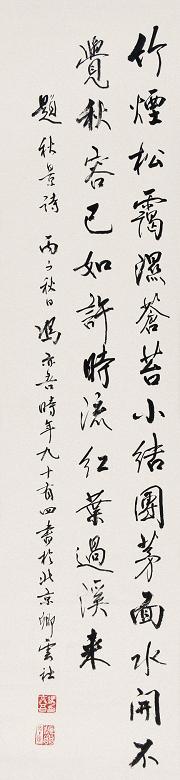 竹煙松靄濕蒼苔小結團茅面水開不
覺秋容已如許時流紅葉過溪来
題秋景詩 丙子秋日馮亦吾時年九十有四書於北京卿雲社